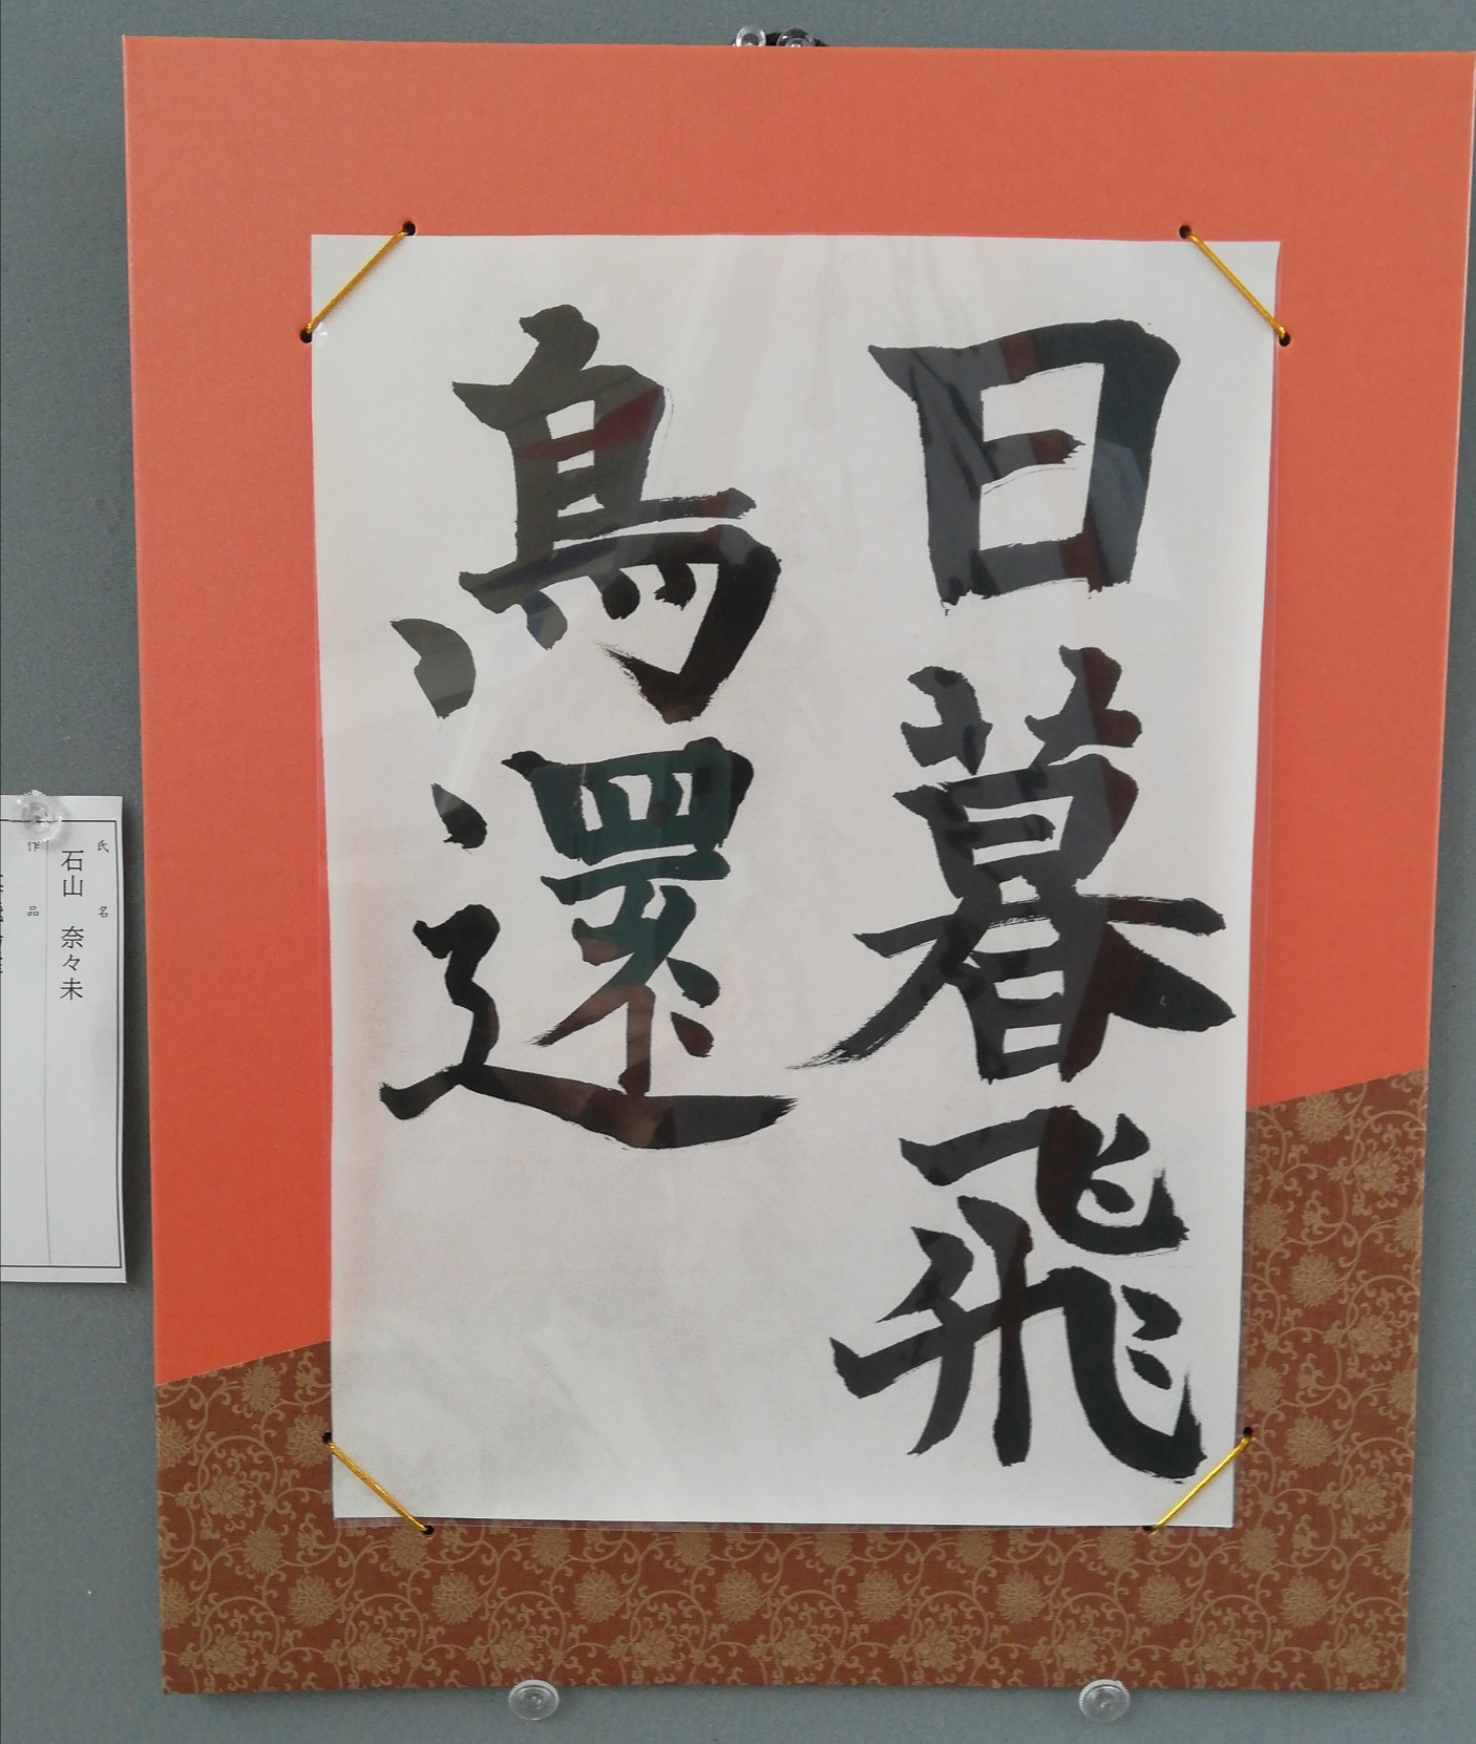 日暮飛
鳥還
氏名
石山 奈々未
作品